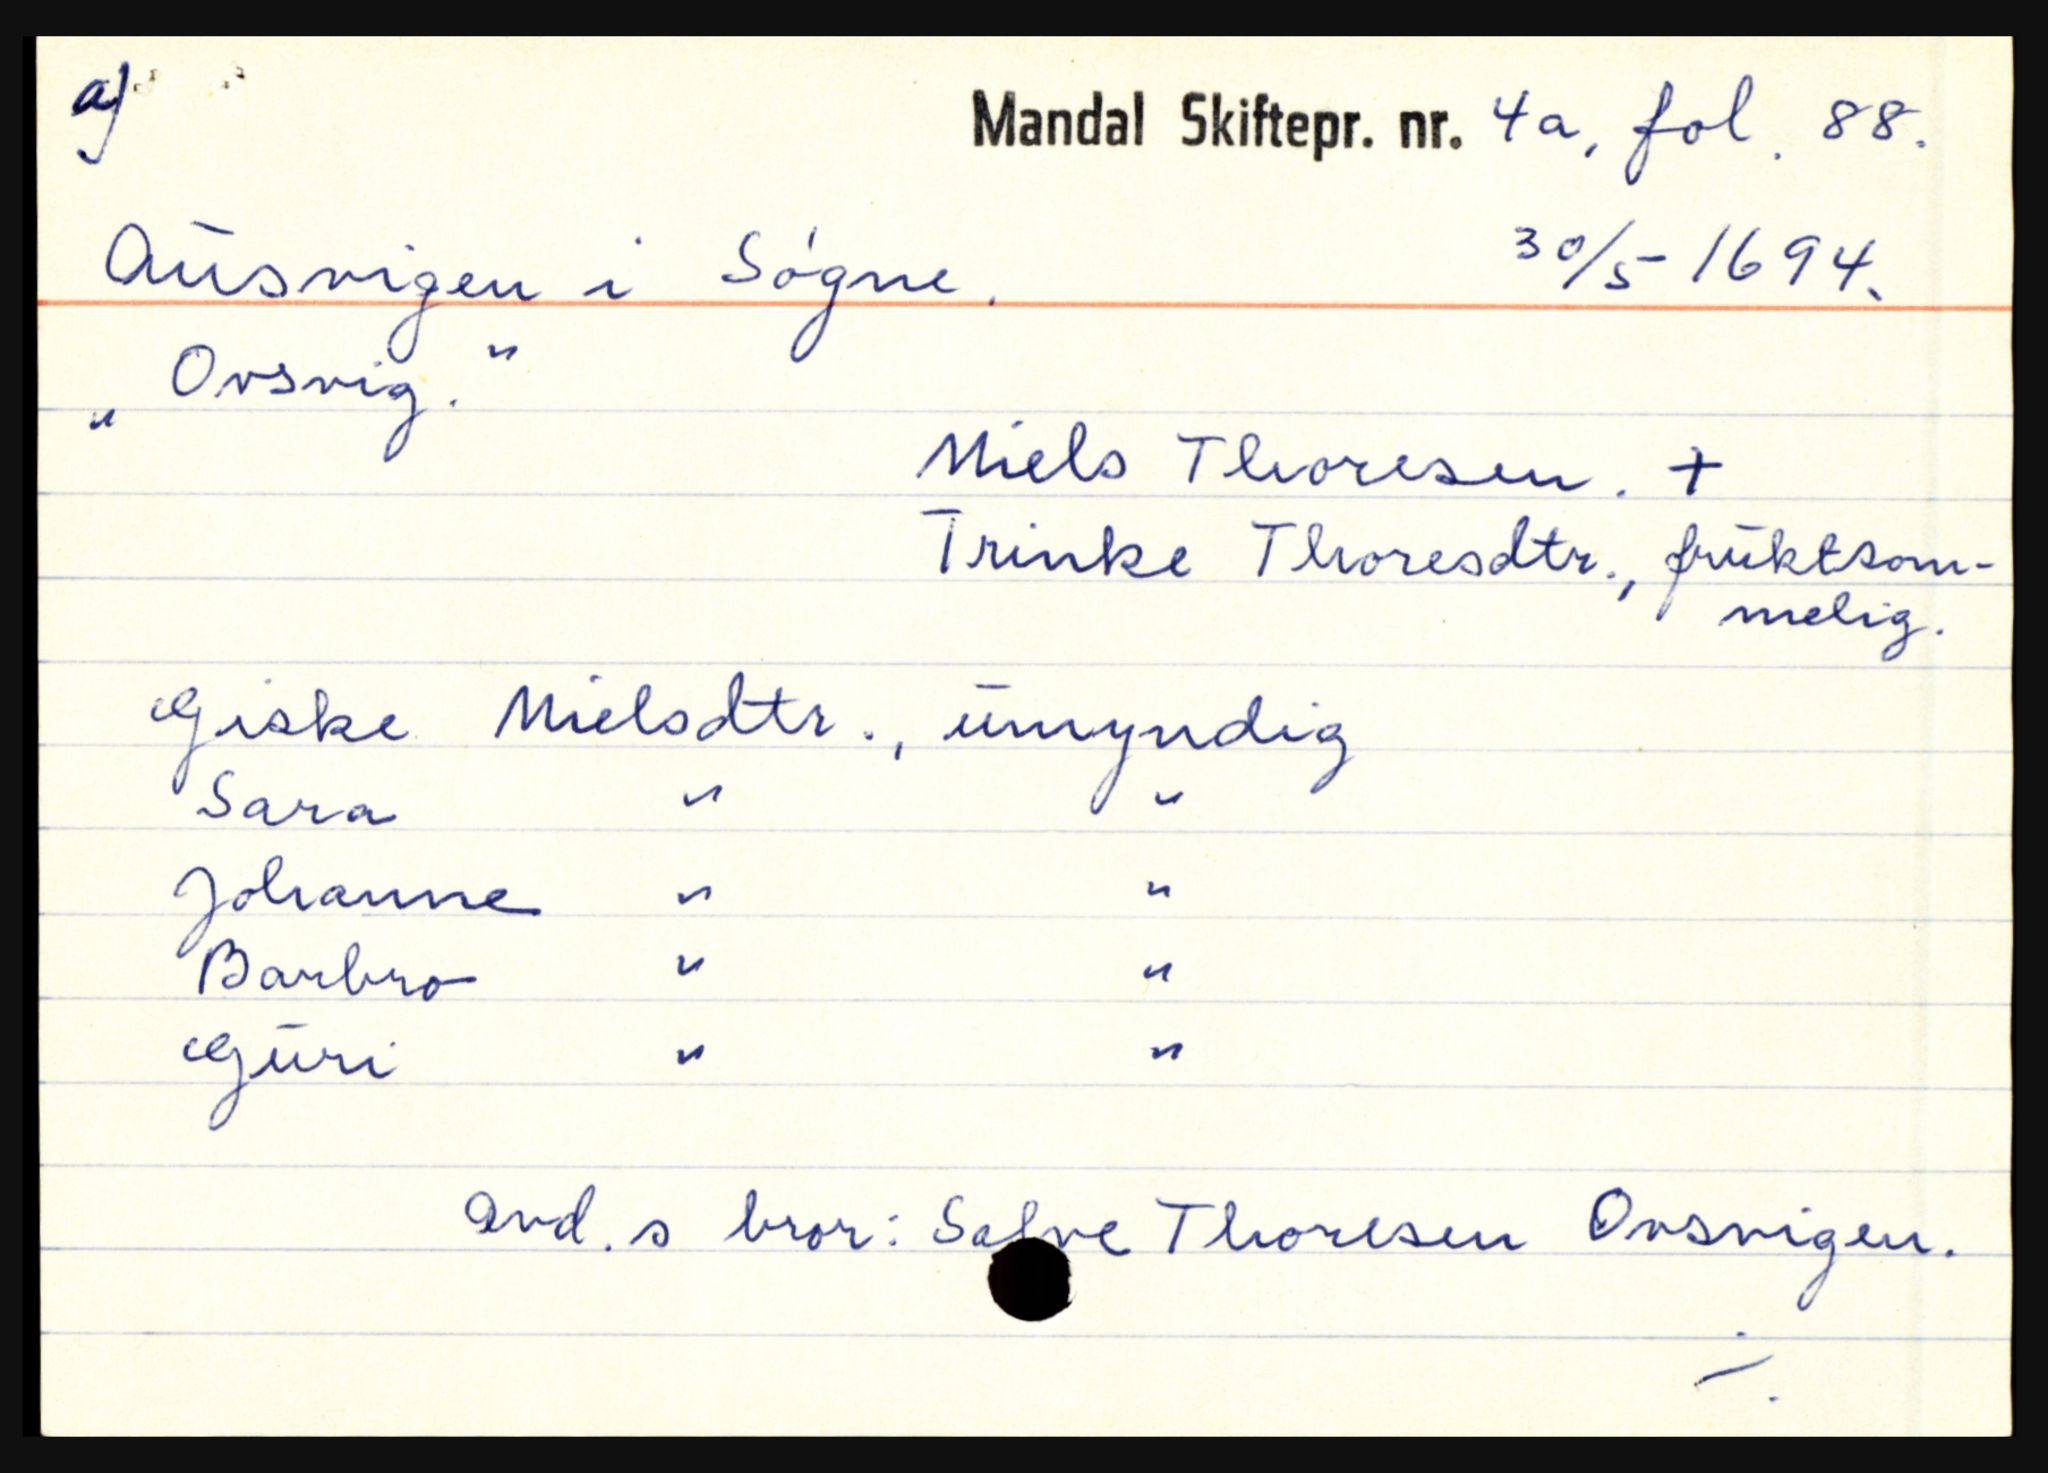 a)
Mandal Skiftepr. nr. 4a, fol. 88.
Ausvigen i Søgne. 30/5-1694.
„Ovsvig."
Niels Thoresen. +
Trinke Thoresdtr., fruktsom-
melig.
Giske Nielsdtr., umyndig
Sara " "
Johanne " "
Barbro " "
Guri " "
avd.s bror: Salve Thoresen Ovsvigen.